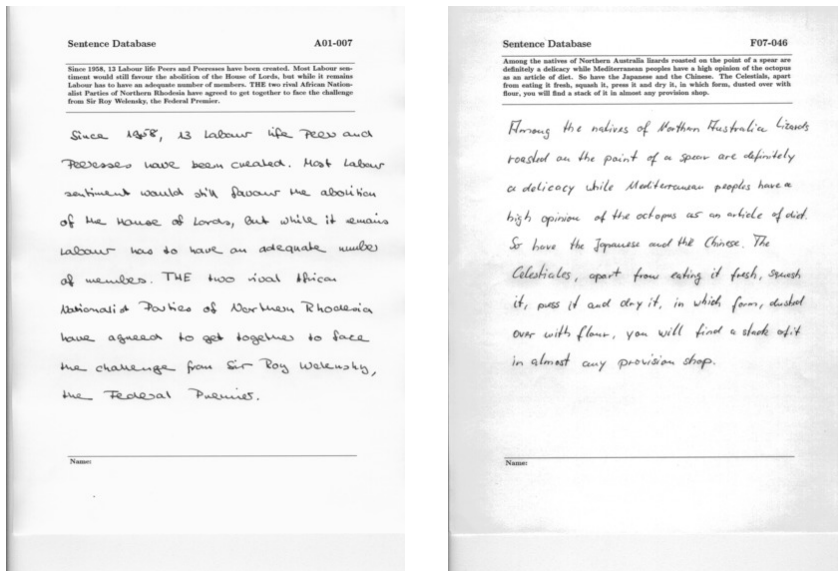 Sentence Database A01-007
Since 1958, 13 Labour life Peers and Peeresses have been created. Most Labour sen-
timent would still favour the abolition of the House of Lords, but while it remains
Labour has to have an adequate number of members. THE two rival African Nation-
alist Parties of Northern Rhodesia have agreed to get together to face the challenge
from Sir Roy Welensky, the Federal Premier.
Since 1958, 13 Labour life Peers and
Peeresses have been created. Most Labour
sentiment would still favour the abolition
of the House of Lords, but while it remains
Labour has to have an adequate number
of members. THE two rival African
Nationalist Parties of Northern Rhodesia
have agreed to get together to face
the challenge from Sir Roy Welensky,
the Federal Premier.
Name:
Sentence Database F07-046
Among the natives of Northern Australia lizards roasted on the point of a spear are
definitely a delicacy while Mediterranean peoples have a high opinion of the octopus
as an article of diet. So have the Japanese and the Chinese. The Celestials, apart
from eating it fresh, squash it, press it and dry it, in which form, dusted over with
flour, you will find a stack of it in almost any provision shop.
Among the natives of Northern Australia lizards
roasted on the point of a spear are definitely
a delicacy while Mediterranean peoples have a
high opinion of the octopus as an article of diet.
So have the Japanese and the Chinese. The
Celestiales, apart from eating it fresh, squash
it, press it and dry it, in which form, dusted
over with flour, you will find a stack of it
in almost any provision shop.
Name: